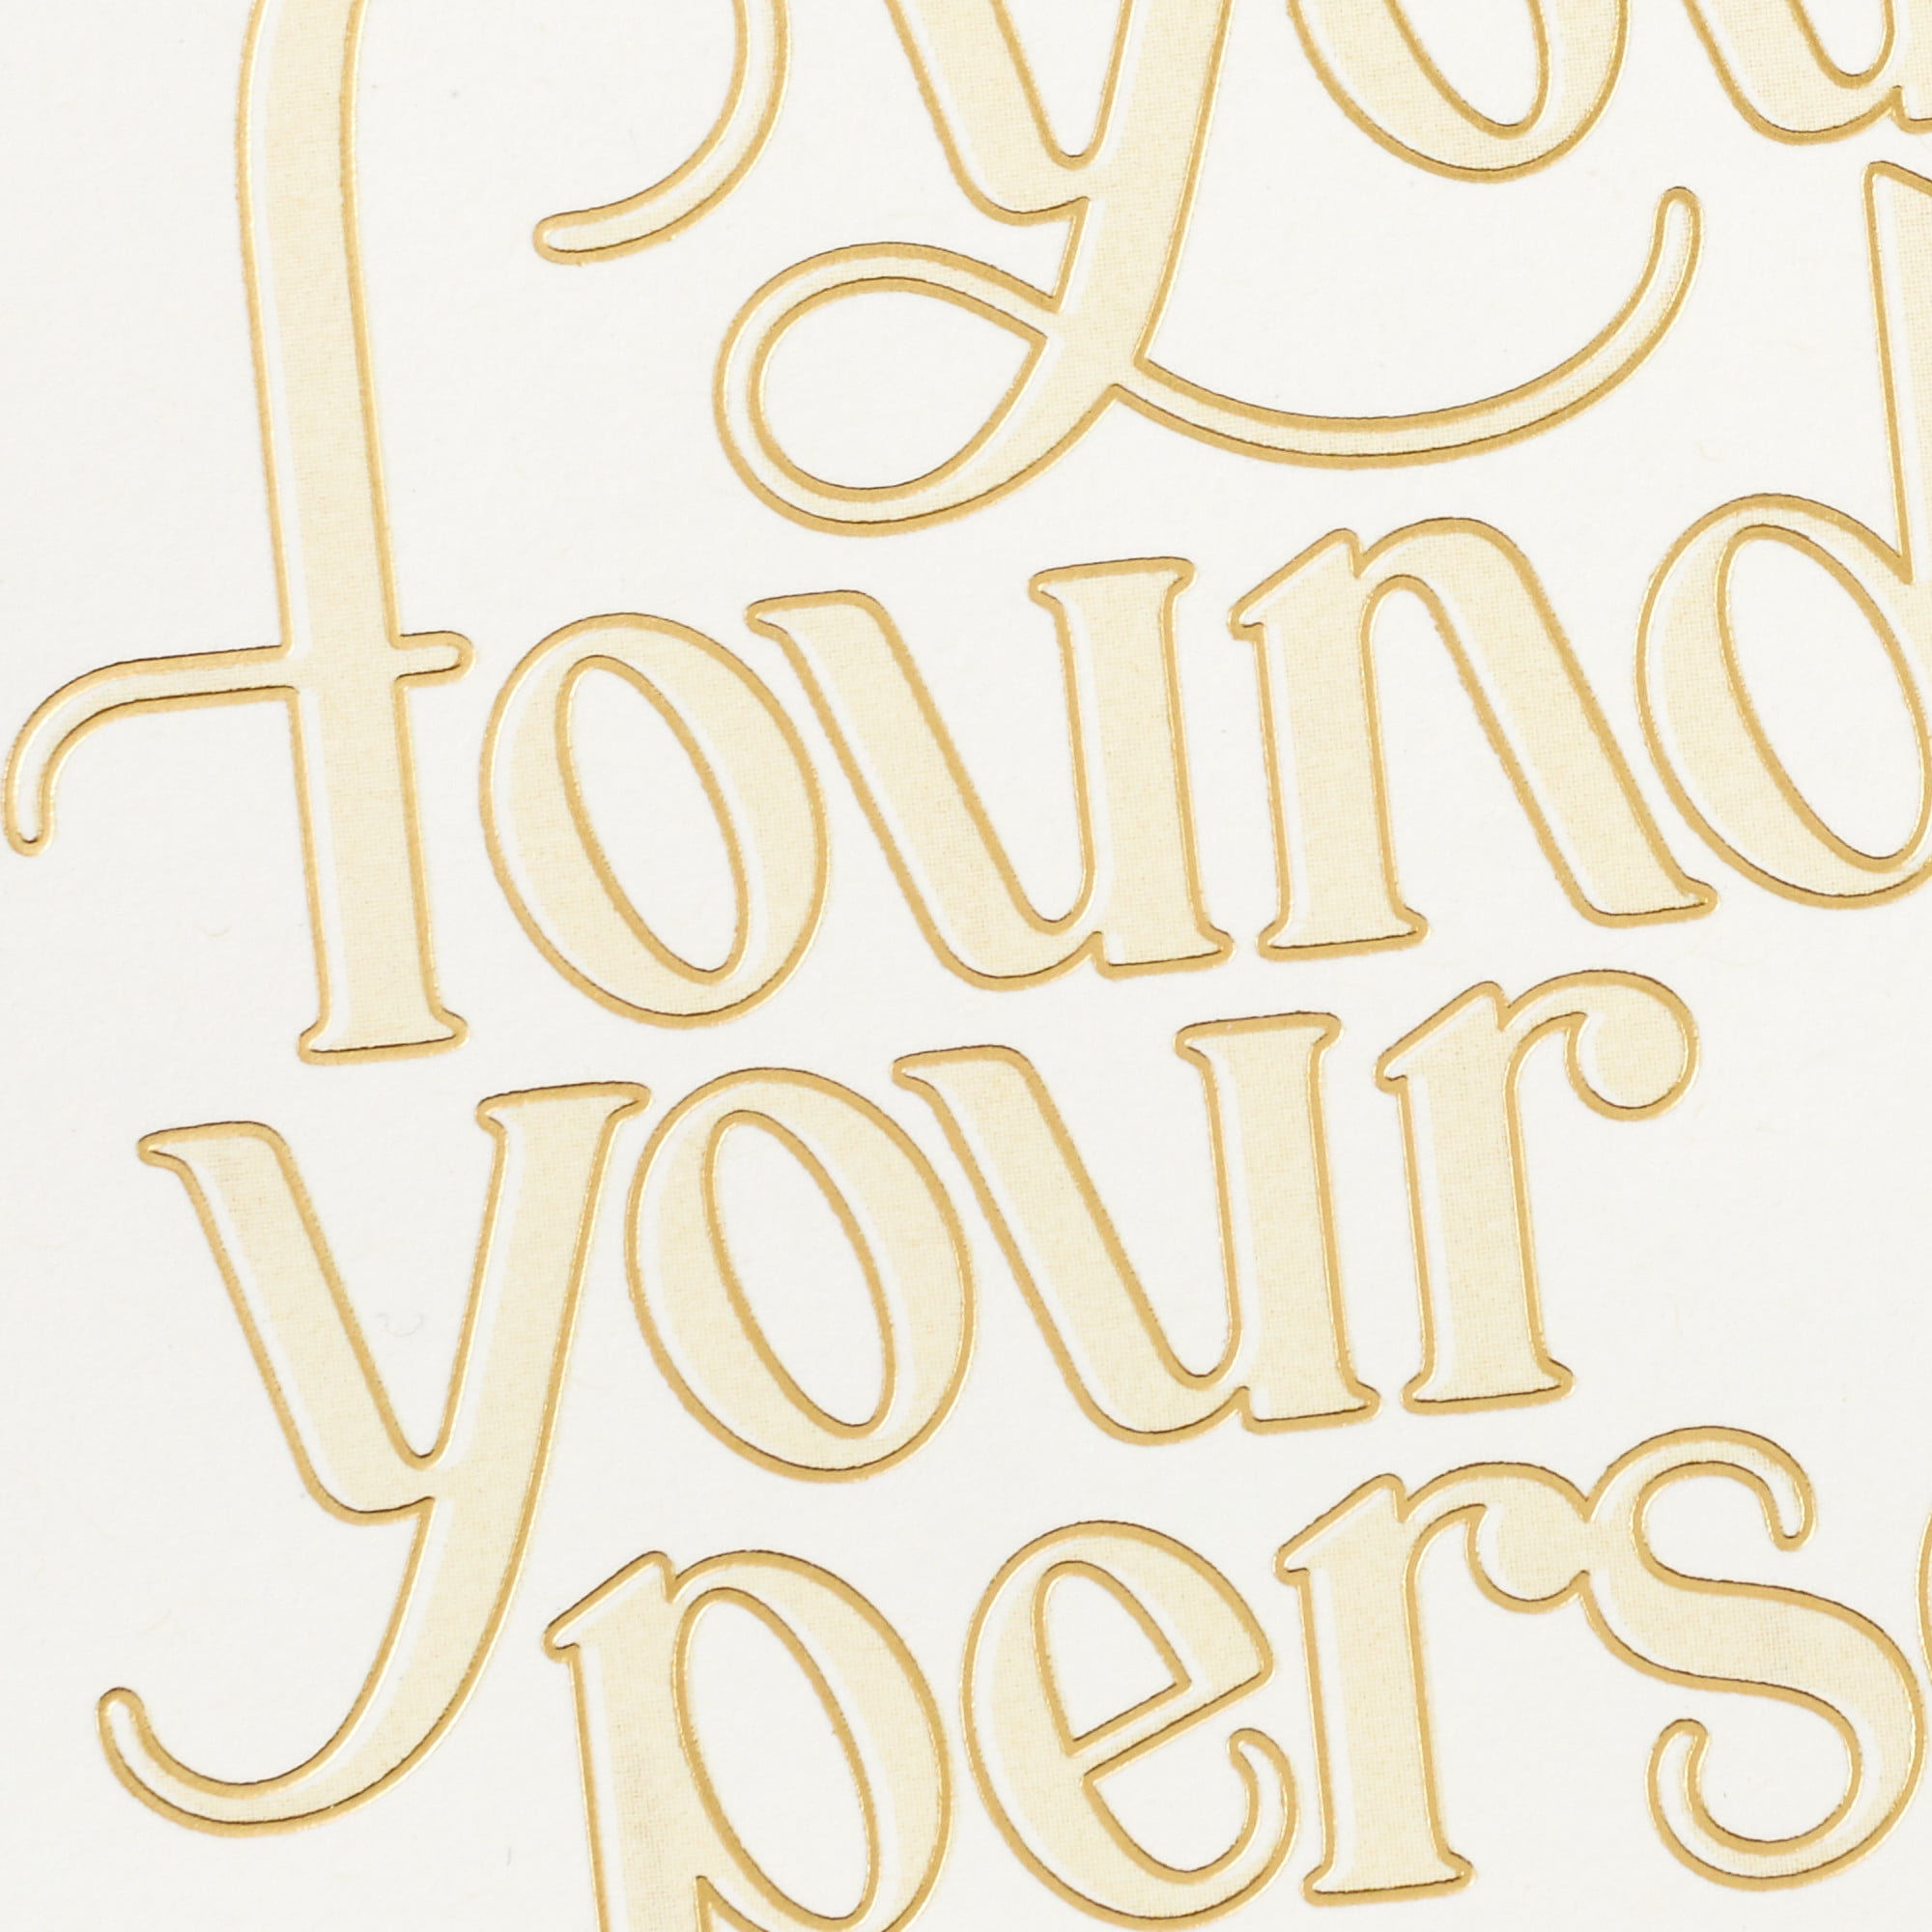 you
found
your
pers